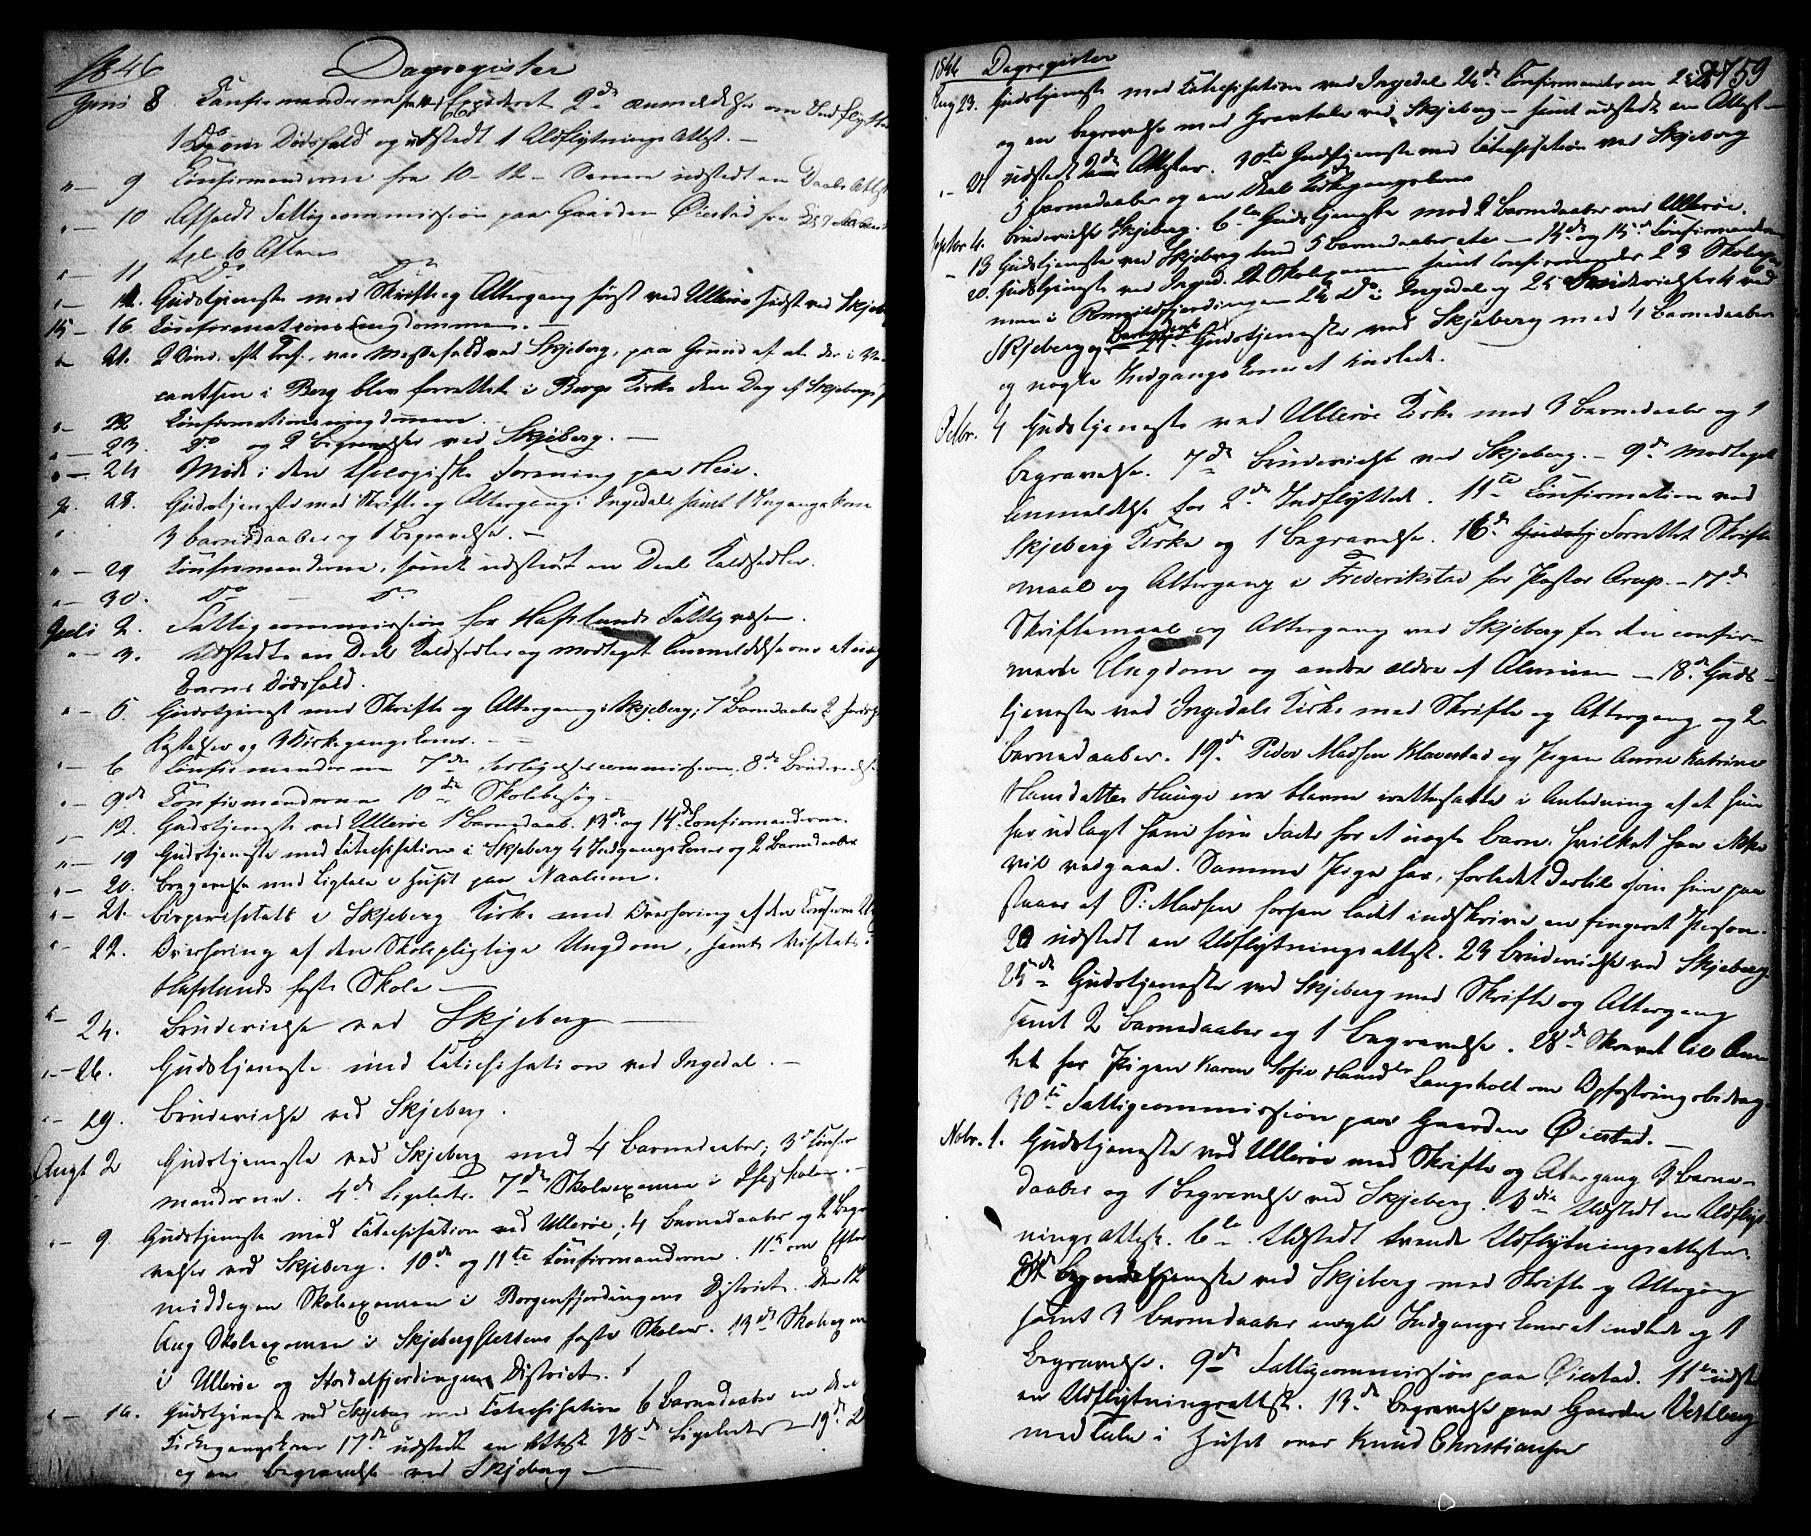 1846 Dagregister
Juni 8. Confirmanderne samt Expederet 2de anmeldelser om Indflyttede
1 Do om Dødsfald og udstedt 1 Udflytnings Attest. —
" — 9 Confirmanderne fra 10 - 12 — Senere udstedt en Daabs Attest
" — 10 Afholdt Fattigcommission paa Gaarden Øiestad fra
Kl. 10 Aften
" — 11 Do Do
" — 12. Gudstjeneste med Skrifte og Altergang først ved Ullerøe sidst ved Skjeberg
15 — 16. Confirmations Ungdommen. —
" — 21. 2 Sønd. eft. Tref. var Messefald ved Skjeberg, paa Grund af at der i Va-
cantsen i Berg blev forrettet i Bergs Kirke den Dag af Skjebergs
" — 22 Confirmationsungdommen.
" — 23. Do og 2 Begravelser ved Skjeberg. —
" — 24 Møde i den theologiske Forening paa Heie.
" 28. Gudstjeneste med Skrifte og Altergang i Ingedal samt 1 Ingangskone
3 barnedaaber og 1 begravelse. —
" — 29 Confirmanderne, samt udstedt en Deel Kaldsedler.
" — 30. Do — Do
Juli 2. Fattigcommission for Hafslunds Fattigvæsen.
" — 3. Udstedt en Deel Kaldsedler og modtaget Anmeldelse om et
Barns Dødsfald.
" — 5. Gudstjenest med Skrifte og Altergang i Skjeberg; 7 Barnedaaber 2
og 3 Kirkegangskoner. —
" — 6 Confirmanderne 7de Forligelsescommission, 8de Brudevielse
" — 9de Confirmanderne 10de Skolebesøg —
— 12. Gudstjeneste ved Ullerøe 1 Barnedaab. 13de og 14de Confirmanderne.
" — 19 Gudstjeneste med Catechisation i Skjeberg 4 Indgangskoner og 2 Barnedaaber
" — 20. Begravelse med Ligtale i Huset paa Naalum.
" — 21. Bispevisitats i Skjeberg Kirke med Overhøring af den Confirm.
" — 22. Overhøring af den Skolepligtige Ungdom, samt Visitats i
Hafslunds faste Skole —
" — 24. Brudevielse ved Skjeberg —
" — 26. Gudstjeneste med Catechisation ved Ingedal. —
" — 29. Brudevielse ved Skjeberg.
Augt 2 Gudstjeneste ved Skjeberg med 4 Barnedaaber; 3de Confir
manderne. 4de Ligeledes. 7de Skoleexamen i
" — 9. Gudstjeneste med Catechisation ved Ullerøe; 4 barnedaaber og 2 Begra
velser ved Skjeberg. 10de og 11te Confirmanderne. 11te om Efter
middagen Skoleexamen i Borgenfjerdingens District. Den 12
Aug Skoleexamen i Skjebergslettens faste Skoler. 13de Skoleexamen
i Ullerøe og Hordalfjerdingens District.
" — 16. Gudstjeneste ved Skjeberg med Catechisation 6 Barnedaaber en Deel
Kirkegangskoner 17de udstedt en Attest 18de Ligeledes — 19de 2
og en begravelse ved Skjeberg —
1846 Dagregister 759
Aug 23. Gudstjeneste med Catechisation ved Ingedal 24de Confirmanderne
og en begravelse med Gravtale ved Skjeberg — samt udstedt en Attest —
udstedt 2de Attester. 30te Gudstjeneste med Catechisation ved Skjeberg
3 barnedaaber og en Deel Kirkegangskoner
Septbr 4. Brudevielse Skjeberg. 6te Gudstjeneste med 2 barnedaaber ved Ullerøe.
— 13 Gudstjeneste ved Skjeberg med 5 barnedaaber — 14de og 15de Confirmanderne
20. Gudstjeneste ved Ingedal 21 Skoleexamen samt Confirmander 23 Skoleexa
men i fjerdingen 24 Do i Ingedal og 25 Brudevielser ved
Skjeberg 27 Gudstjeneste ved Skjeberg med 4 barnedaaber
og nogle Indgangskoner at indlede.
Octbr. 4 Gudstjeneste ved Ullerøe Kirke med 3 barnedaaber og 1
begravelse. 7de Brudevielse ved Skjeberg. — 9de modtaget
Anmeldelse for 2de Indflyttede. 11te Confirmation ved
Skjeberg Kirke og 1 begravelse. 16de Forrettet Skrifte
maal og Altergang i Frederikstad for Pastor Arup. — 17de
Skriftemaal og Altergang ved Skjeberg for den confir-
merede Ungdom og andre ældre af Almuen — 18de Guds-
tjeneste ved Ingedals Kirke med Skrifte og Altergang og 2
barnedaaber. 19de Peder Madsen Klavestad og Pigen Anne Katrine
Hansdatter Hauge ere blevne i Anledning af at hun
har udlagt ham som Fader for et uægte barn, hvilket han ikke
vil vedgaae. Samme Pige har, forledet dertil som hun paa
staaer af P: Madsen forhen ladet indskrive en fingeret Person.
20 udstedt en Udflytningsattest. 23 brudevielse ved Skjeberg.
25de Gudstjeneste ved Skjeberg med Skrifte og Altergang
samt 2 barnedaaber og 1 begravelse. 28de Skrevet til Am
tet for Pigen Karen Sofie Hansdtr Langsholt om Opfostringsbidrag.
30te Fattigcommission paa Gaarden Øiestad. —
Novbr. 1. Gudstjeneste ved Ullerøe med Skrifte og Altergang 3 Barne-
daaber og 1 begravelse ved Skjeberg. 3die Udstedt en Udflyt
ningsattest. 6te Udstedt trende Udflytningsattester.
8de Gudstjeneste ved Skjeberg med Skrifte og Altergang
samt 3 barnedaaber nogle Indgangskoner at indlede og 1
begravelse. 9de Fattigcommission paa Øiestad. 11te udstedt
en Udflytningsattest. 13de begravelse paa Gaarden Vestberg
med tale i Huset over Knud Christiansen